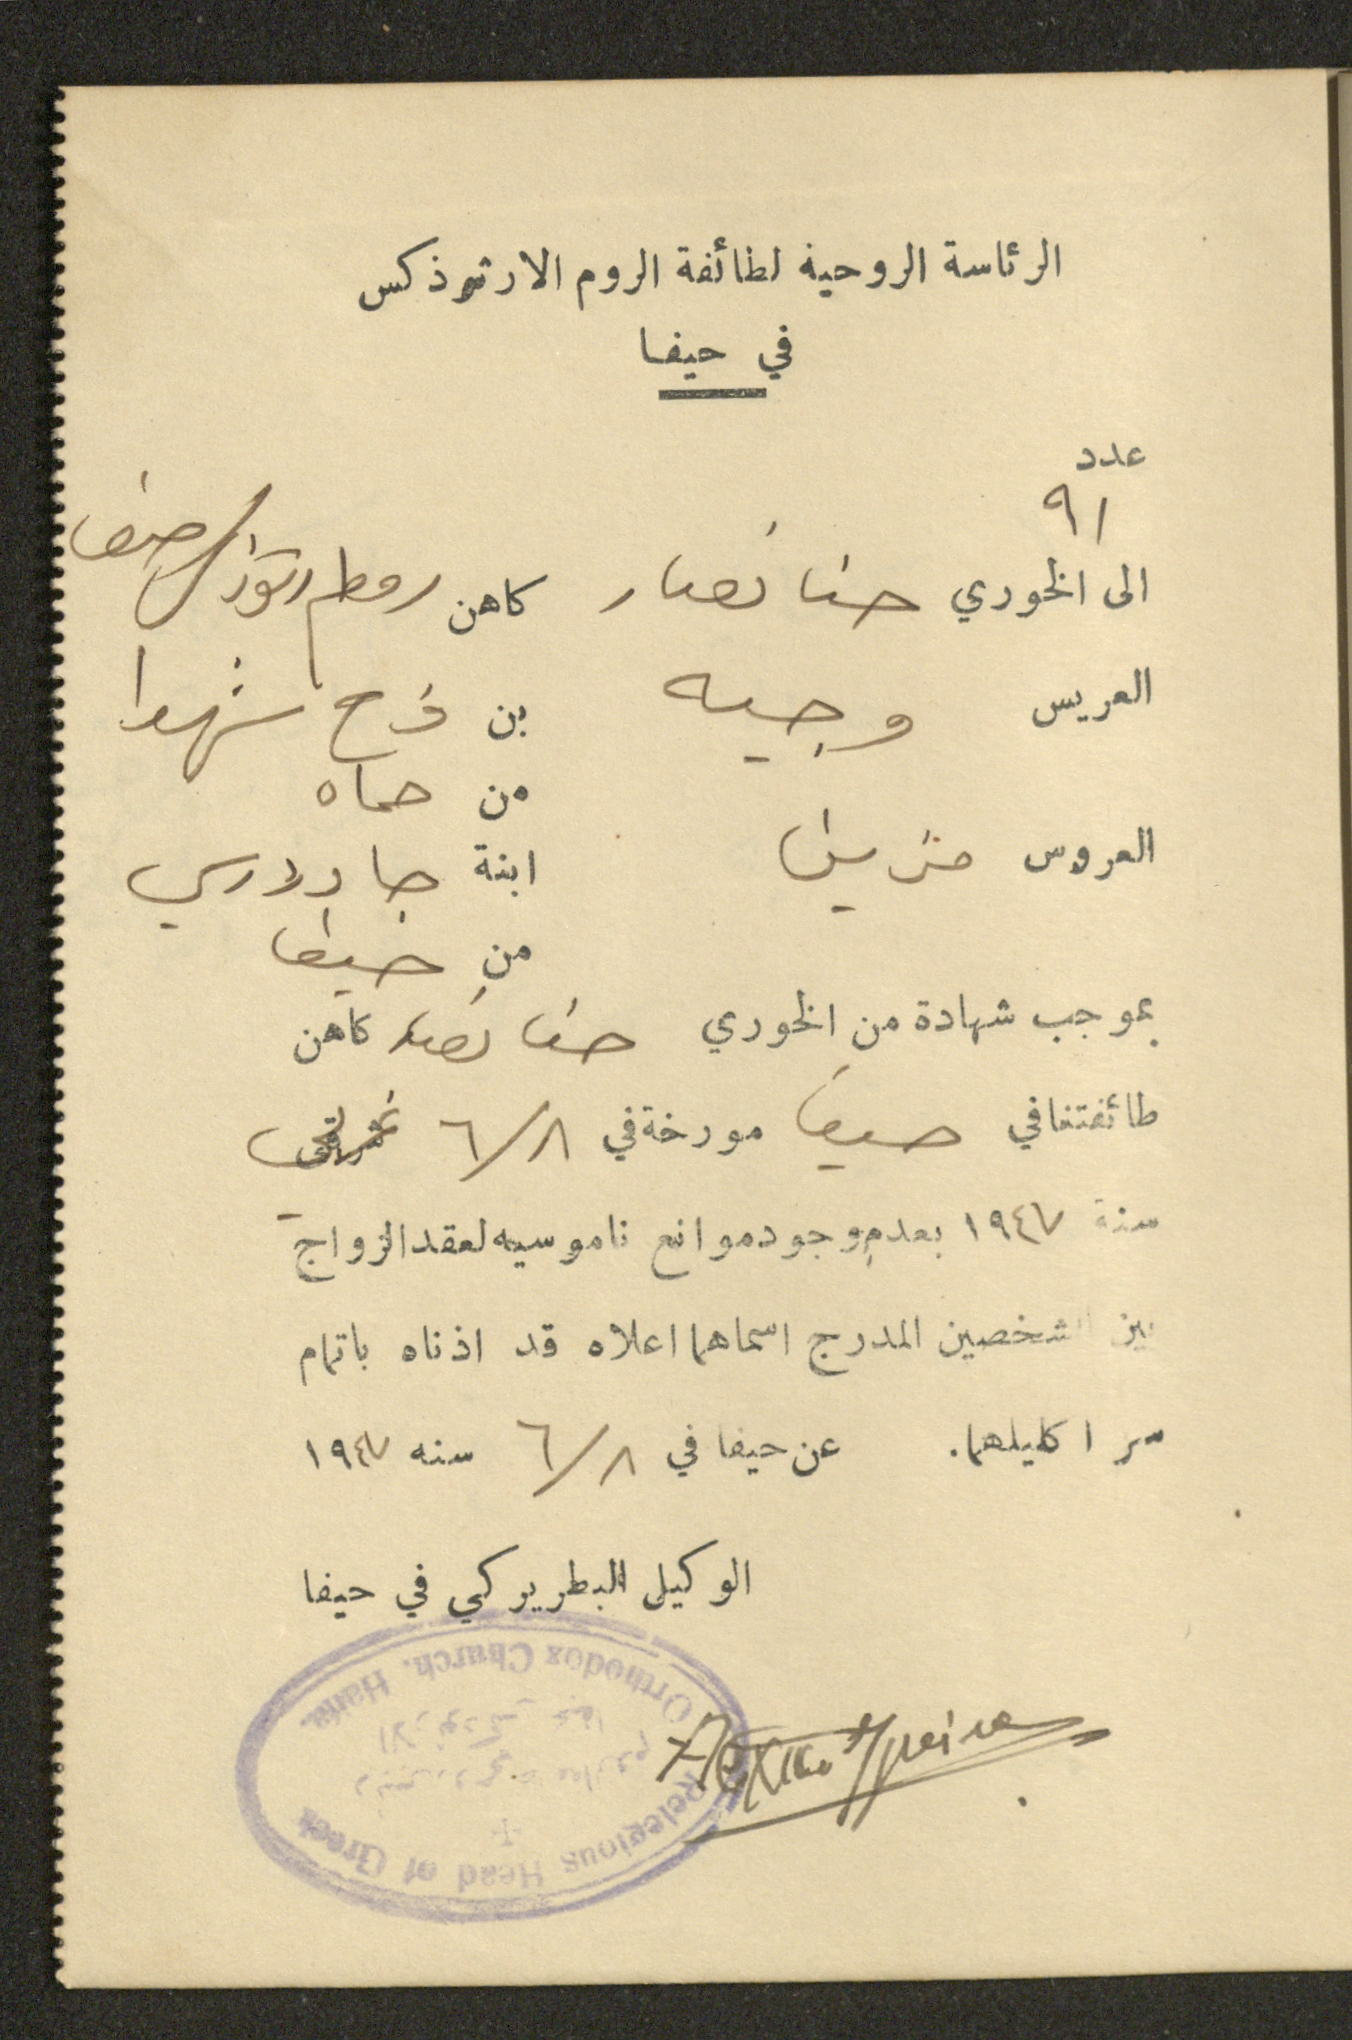 الرئاسة الروحية لطائفة الروم الارثوذكس
في حيفا
عدد
٩١
الى الخوري حنا نصار كاهن روم ارثوذكس حيفا
العريس وجيه بن فرح شهدا
من حماه
العروس ابنة
من حيفا
بموجب شهادة من الخوري حنا نصار كاهن
طائفتنا في حيفا مورخة في ٦/٨
سنة ١٩٤٧ بعدم وجود موانع ناموسيه لعقد الزواج
بين الشخصين المدرج اسماهما اعلاه قد اذناه باتمام
سر اكليلهما. عن حيفا في ٦/٨ سنه ١٩٤٧
الوكيل البطريركي في حيفا
Relegious Head of Greek Orthodox Church. Haifa.